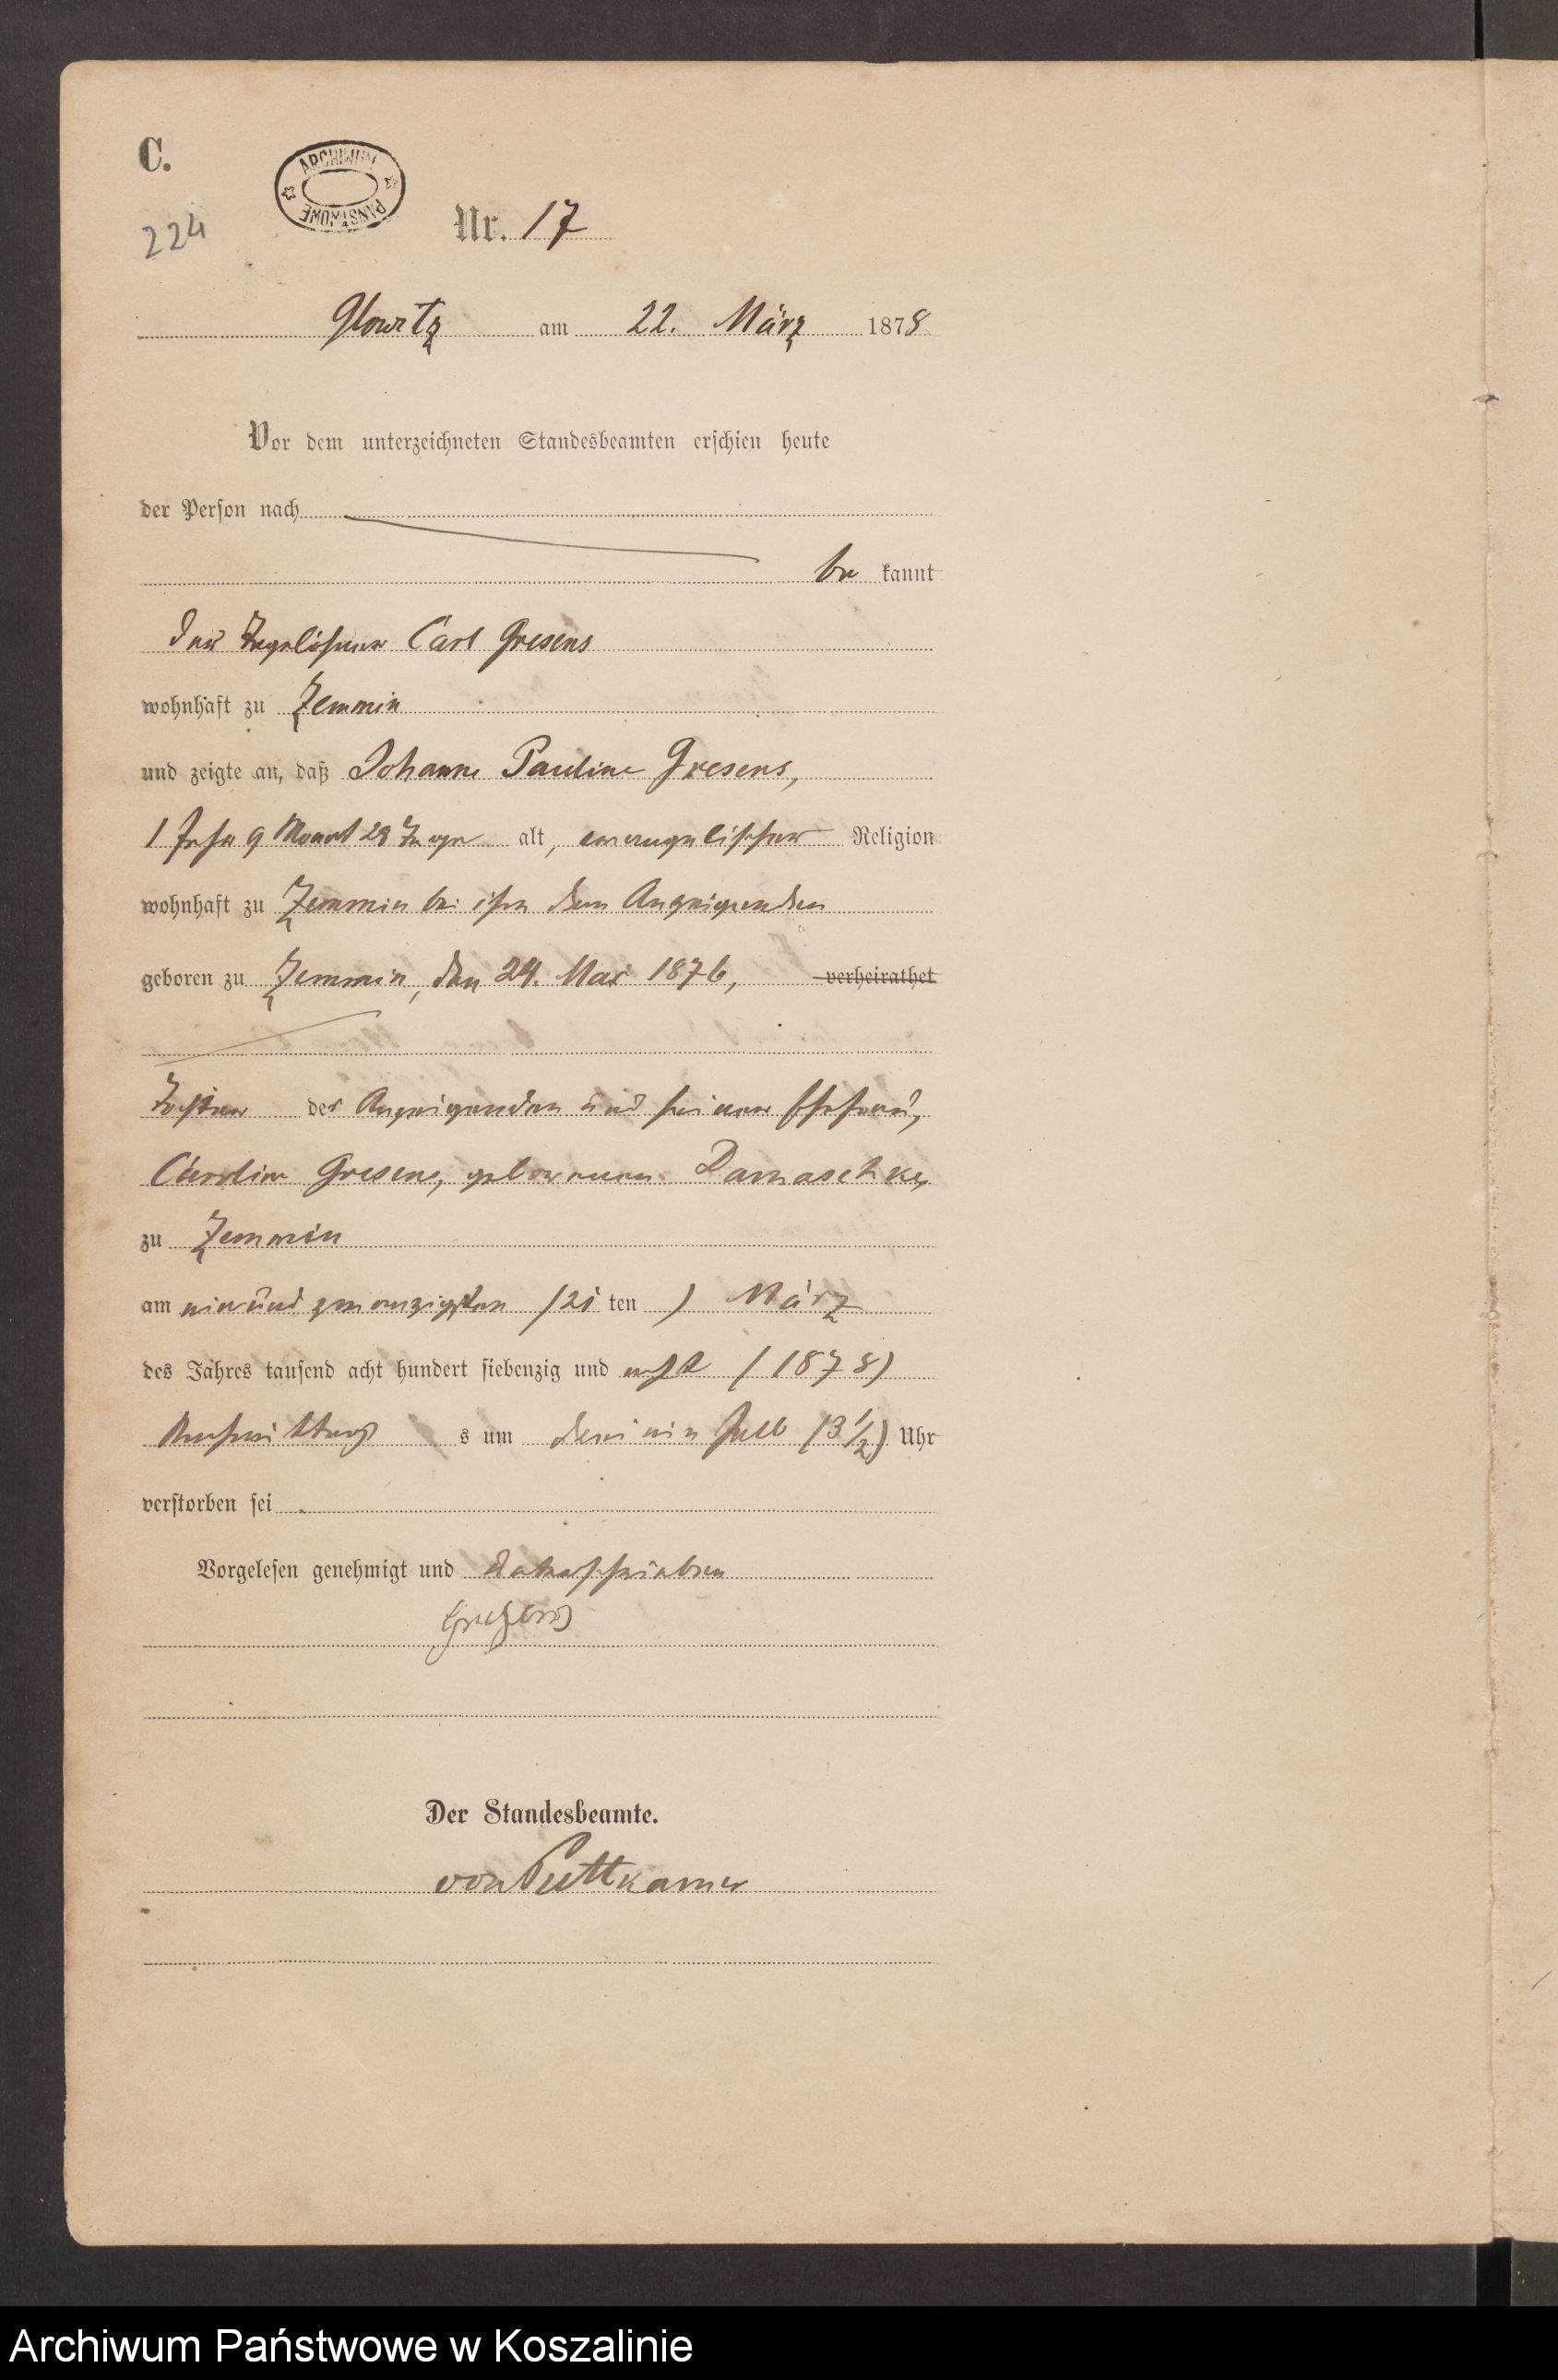 C.
ARCHIWUM PAŃSTWOWE
224
Nr. 17
Glowitz am 22. März 1878
Vor dem unterzeichneten Standesbeamten erschien heute
der Person nach
be kannt
der Tagelöhner Carl Gresens
wohnhaft zu Zemmin
und zeigte an, daß Johanne Pauline Gresens,
1 Jahr 9 Monat 28 Tage alt, evangelischer Religion
wohnhaft zu Zemmin bei ihm dem Anzeigenden
geboren zu Zemmin, den 24. Mai 1876, verheirathet
Tochter des Anzeigenden und seiner Ehefrau,
Caroline Gresens, geborenen Damaschke,
zu Zemmin
am einundzwanzigsten (21 ten ) März
des Jahres tausend acht hundert siebenzig und acht (1878)
Nachmittag s um drei ein halb (3 1/2) Uhr
verstorben sei
Vorgelesen genehmigt und unterschrieben
Gresens
Der Standesbeamte.
von Puttkamer
Archiwum Państwowe w Koszalinie